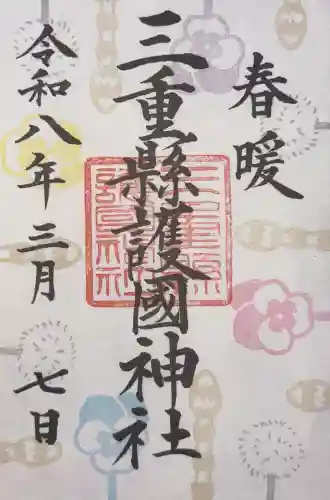 春暖
三重縣護國神社
令和八年三月七日
三重縣護國神社